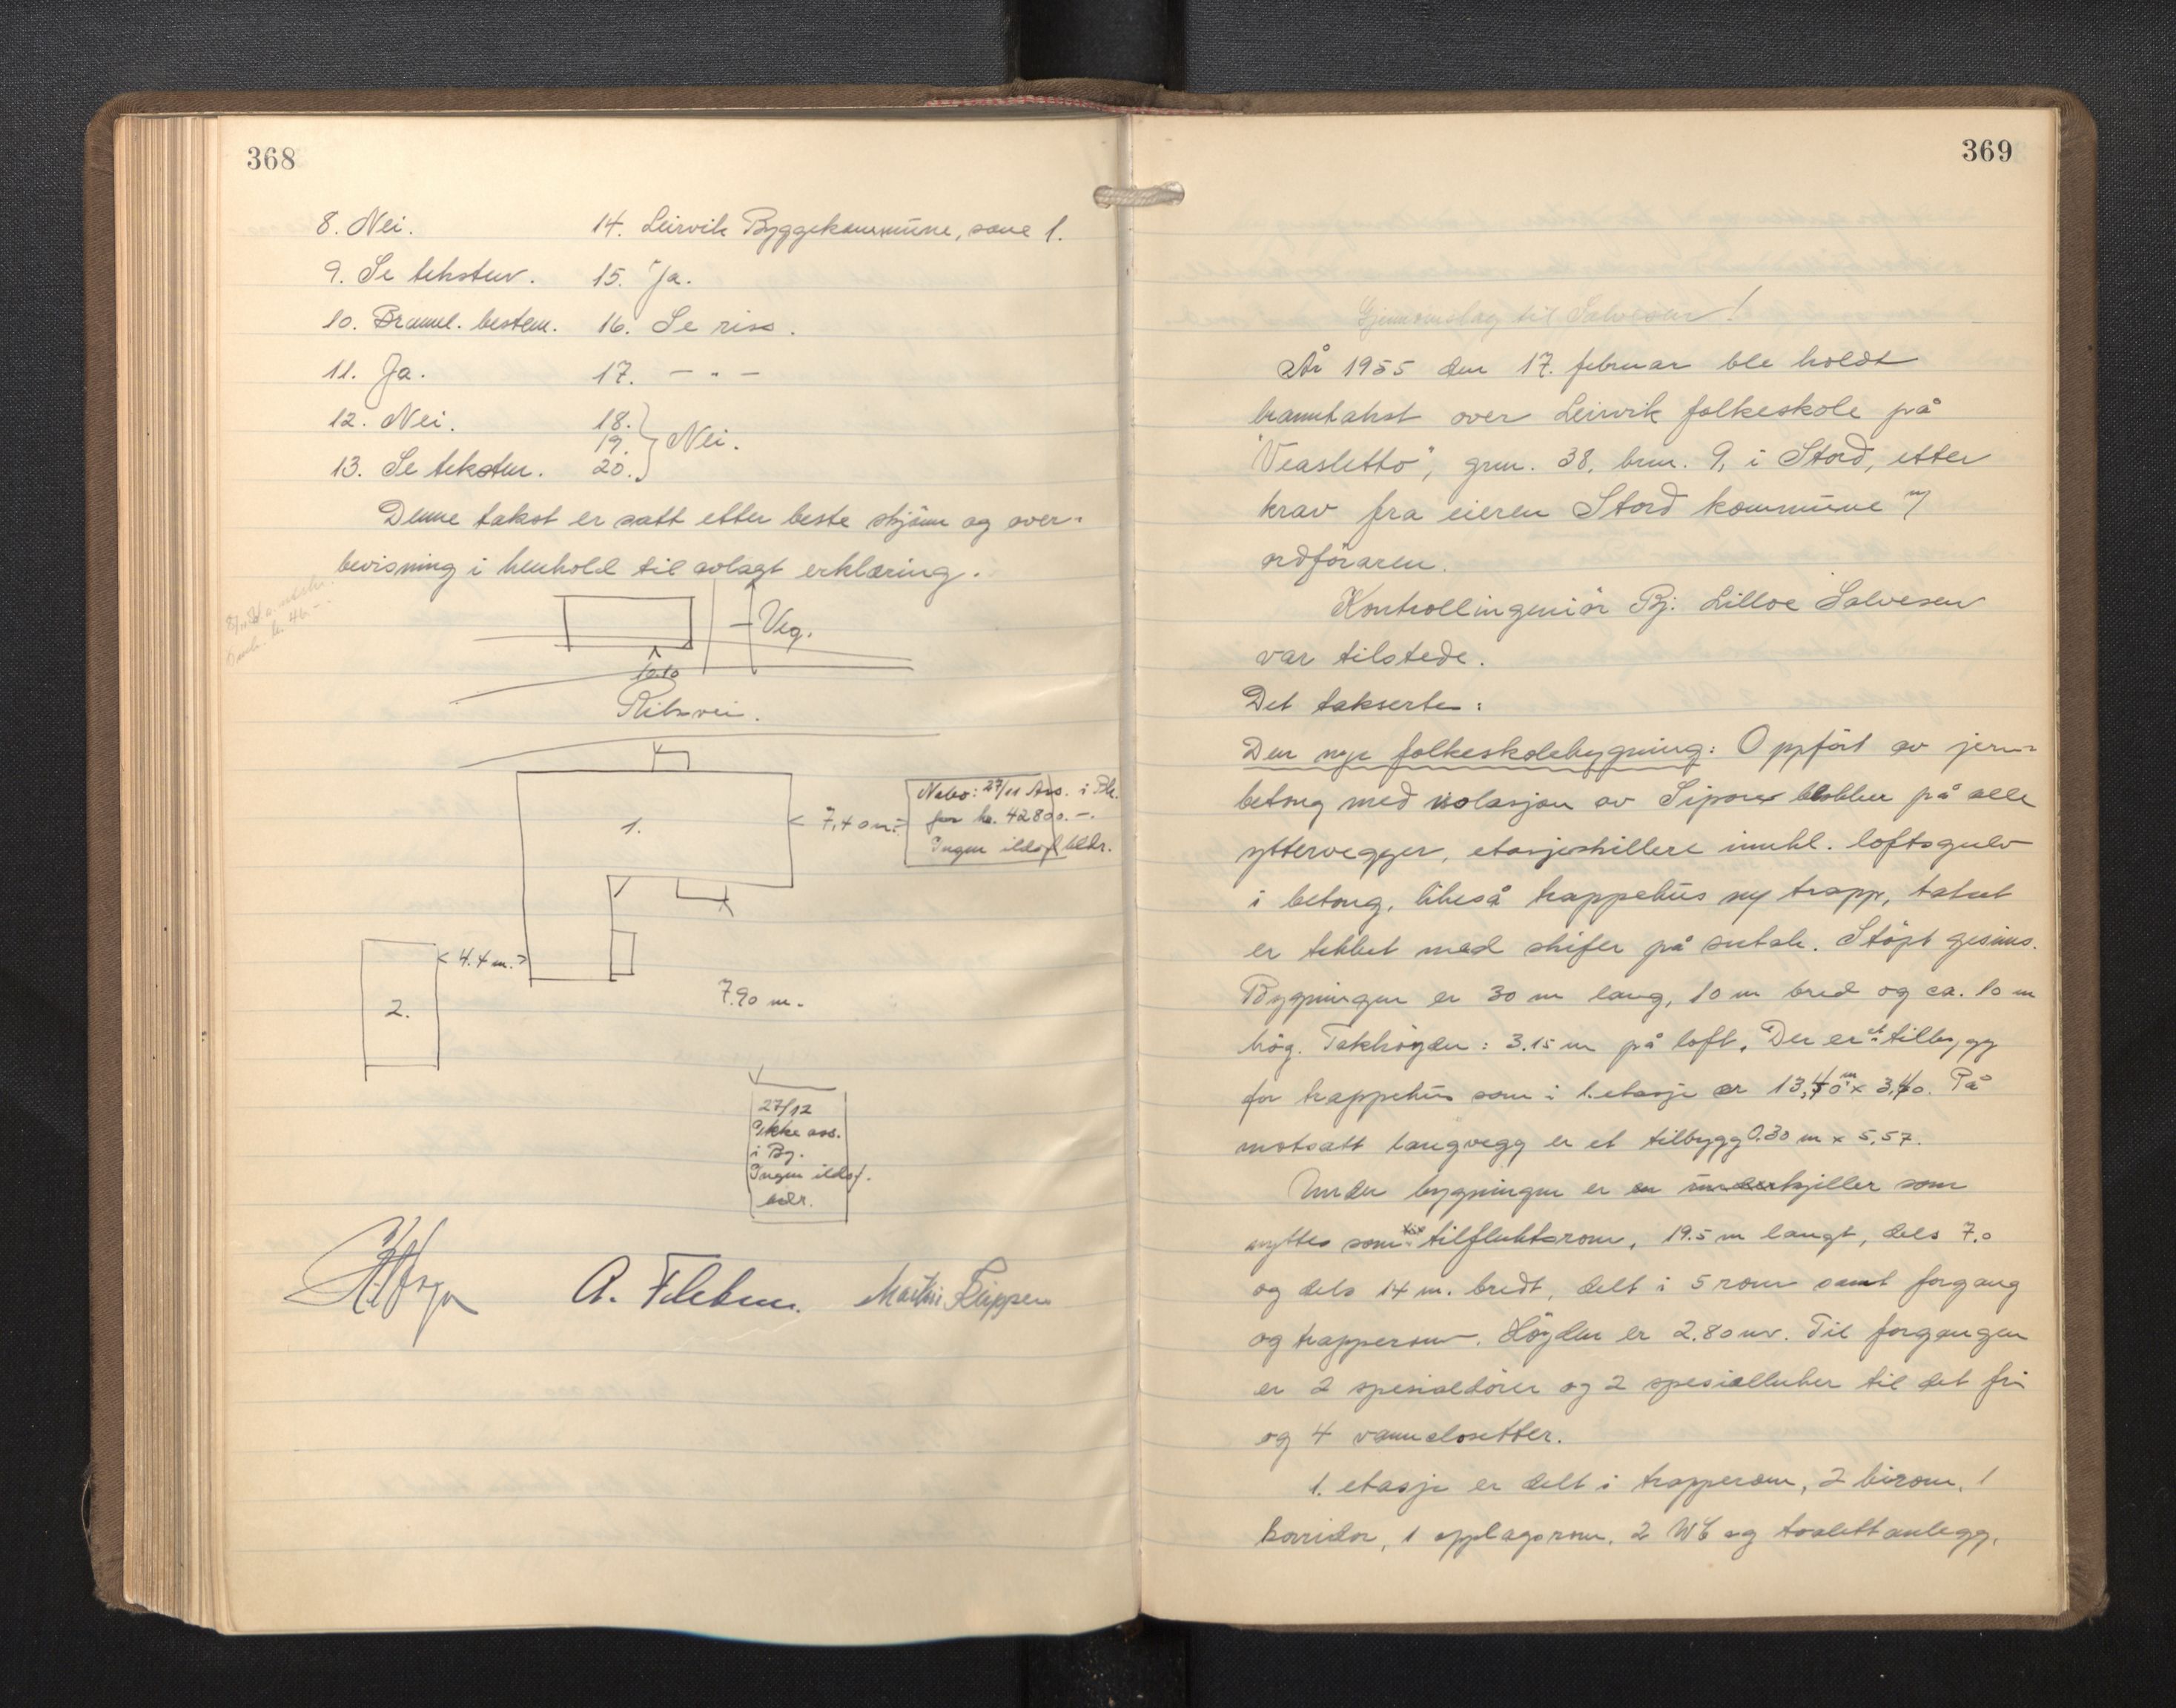 368
8. Nei.
9. Se teksten.
10. Brannl. bestem.
11. Ja.
12. Nei.
13. Se teksten.
14. Leirvik Byggekommune, sone 1.
15. Ja.
16. Se riss.
17. — " —
18.
19. } Nei.
20.
Denne takst er satt etter beste skjönn og over-
bevisning i henhold til avlagt erklæring.
Veg.
10.10
Riksvei.
1.
7,40 m.
Nabo: 27/11 Ass. i Bk.
for kr. 42800.-.
Ingen ildsf. bedr.
4.4 m.
2.
7.90 m.
27/12
Ikke ass.
i By.
Ingen ildsf.
bedr.
Martin
369
Gjennomslag til Salvesen!
År 1955 den 17. februar ble holdt
branntakst over Leirvik folkeskole på
"Veasletto", gnr. 38, bnr. 9, i Stord, etter
krav fra eieren Stord kommune v/
ordföraren.
Kontrollingeniör Bj. Lilloe Salvesen
var tilstede.
Det takserte:
Den nye folkeskolebygning: Oppfört av jern-
betong med isolasjon av Siporex blokker på alle
yttervegger, etasjeskillere innkl. loftsgulv
i betong, likeså trappehus og trapp, taket
er tekket med skifer på sutak. Stöpt gesims.
Bygningen er 30 m lang, 10 m bred og ca. 10 m
hög. Takhöyden: 3.15 m på loft. Der er et tilbygg
for trappehus som i 1. etasje er 13,40 m x 3,40. På
motsatt langvegg er et tilbygg 0.30 m x 5,57.
Under bygningen er en underkjeller som
nyttes som tilfluktsrom, 19.5 m langt, dels 7.0
og dels 14 m. bredt, delt i 5 rom samt forgang
og trapperom. Höyden er 2.80 m. Til forgangen
er 2 spesialdörer og 2 spesialluker til det fri
og 4 vannclosetter.
1. etasje er delt i trapperom, 2 birom, 1
korridor, 1 opplagsrom, 2 WC og toalettanlegg,